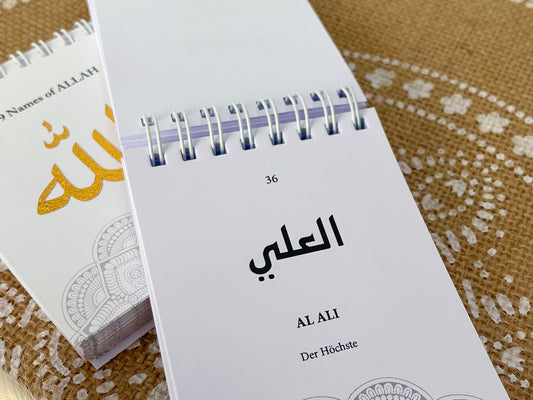 9 Names of ALLAH
الله
36
العلي
AL ALI
Der Höchste